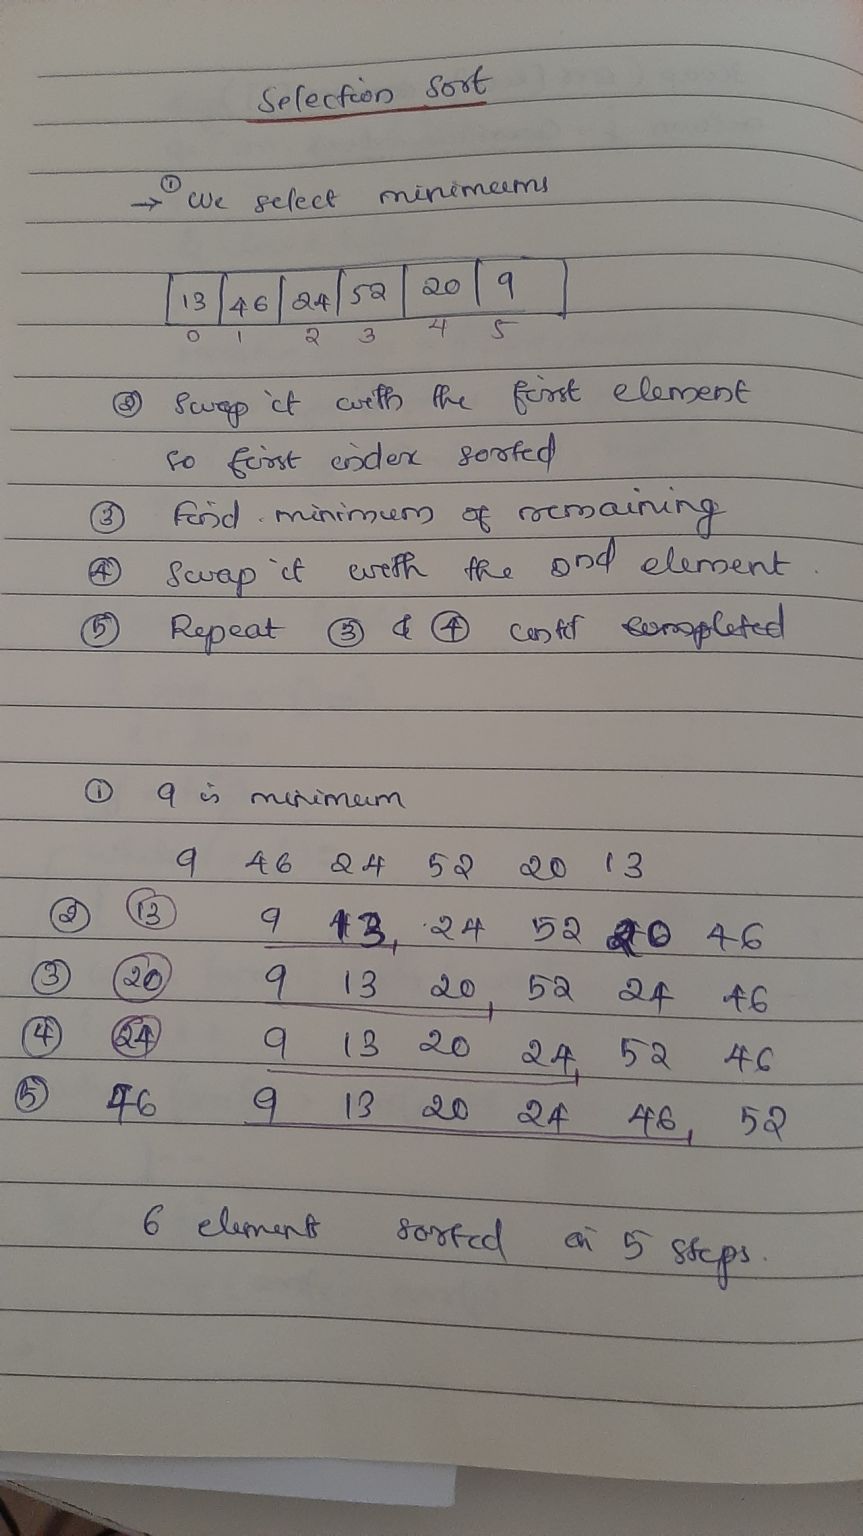 Selection Sort
→ ① We select minimums
13 46 24 52 20 9
0 1 2 3 4 5
② Swap it with the first element
so first index sorted
③ find minimum of remaining
④ Swap it with the 2nd element.
⑤ Repeat ③ & ④ until completed
① 9 is minimum
9 46 24 52 20 13
② 13 9 13, 24 52 20 46
③ 20 9 13 20, 52 24 46
④ 24 9 13 20 24, 52 46
⑤ 46 9 13 20 24 46, 52
6 element sorted in 5 steps.